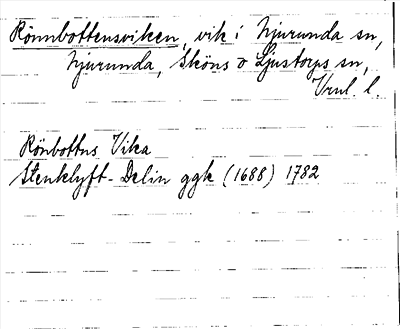 Rönnbottensviken, vik i Njurunda sn,
Njurunda, Sköns o Ljustorps sn,
Vnl. l.
Rönbottns Vika
Stenklyft-Delin ggk (1688) 1782